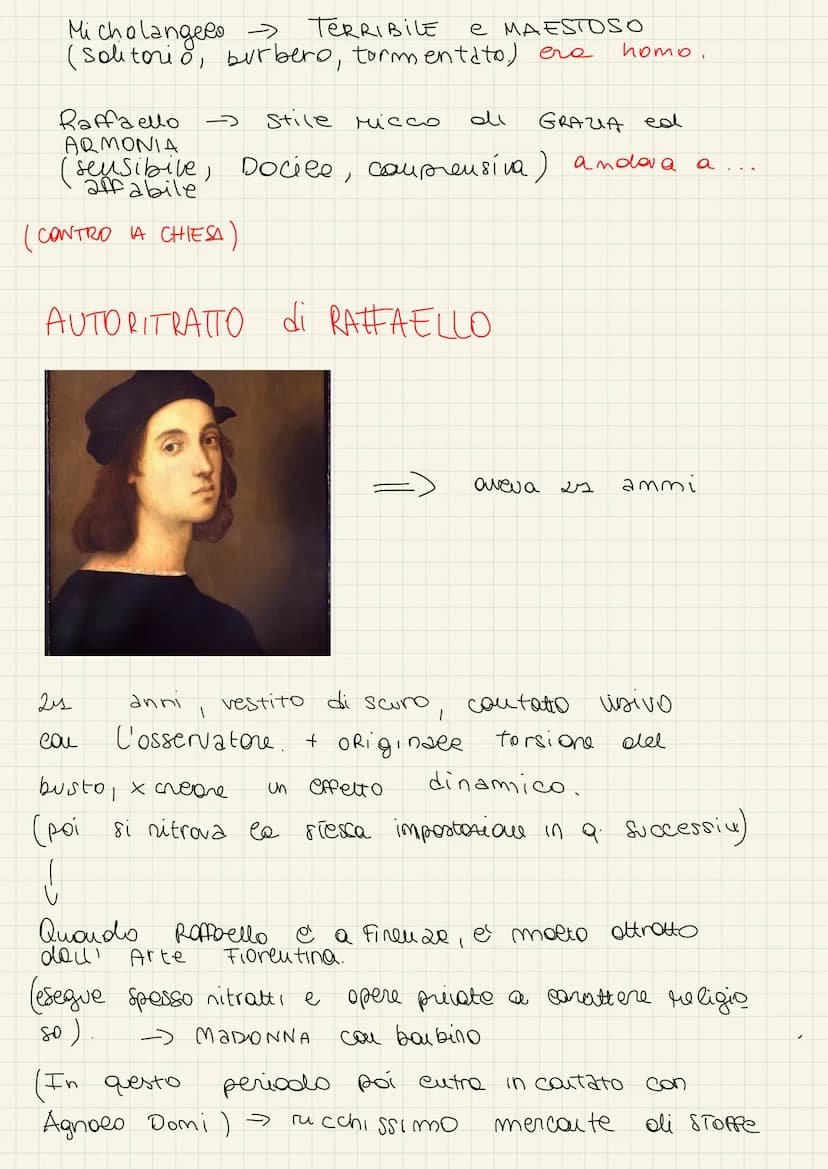 Micholangelo -> TERRIBILE e MAESTOSO
(Solitorio, burbero, tormentato) era homo.
Raffaello -> Stile ricco di GRAZIA ed
ARMONIA
(sensibile, Docile, comprensiva) andava a ...
affabile
(CONTRO LA CHIESA)
AUTORITRATTO di RAFFAELLO
=> aveva 21 anni
21 anni, vestito di scuro, contatto visivo
con l'osservatore. + originale torsione del
busto, x creare un effetto dinamico.
(poi si ritrova la stessa impostazione in q. successivi)
↓
Quando Raffaello è a Firenze, è molto attratto
dall' Arte Fiorentina.
(esegue spesso ritratti e opere private a carattere religio
so). -> MADONNA con bambino
(In questo periodo poi entra in contatto con
Agnolo Domi) => ricchissimo mercante di STOFFE